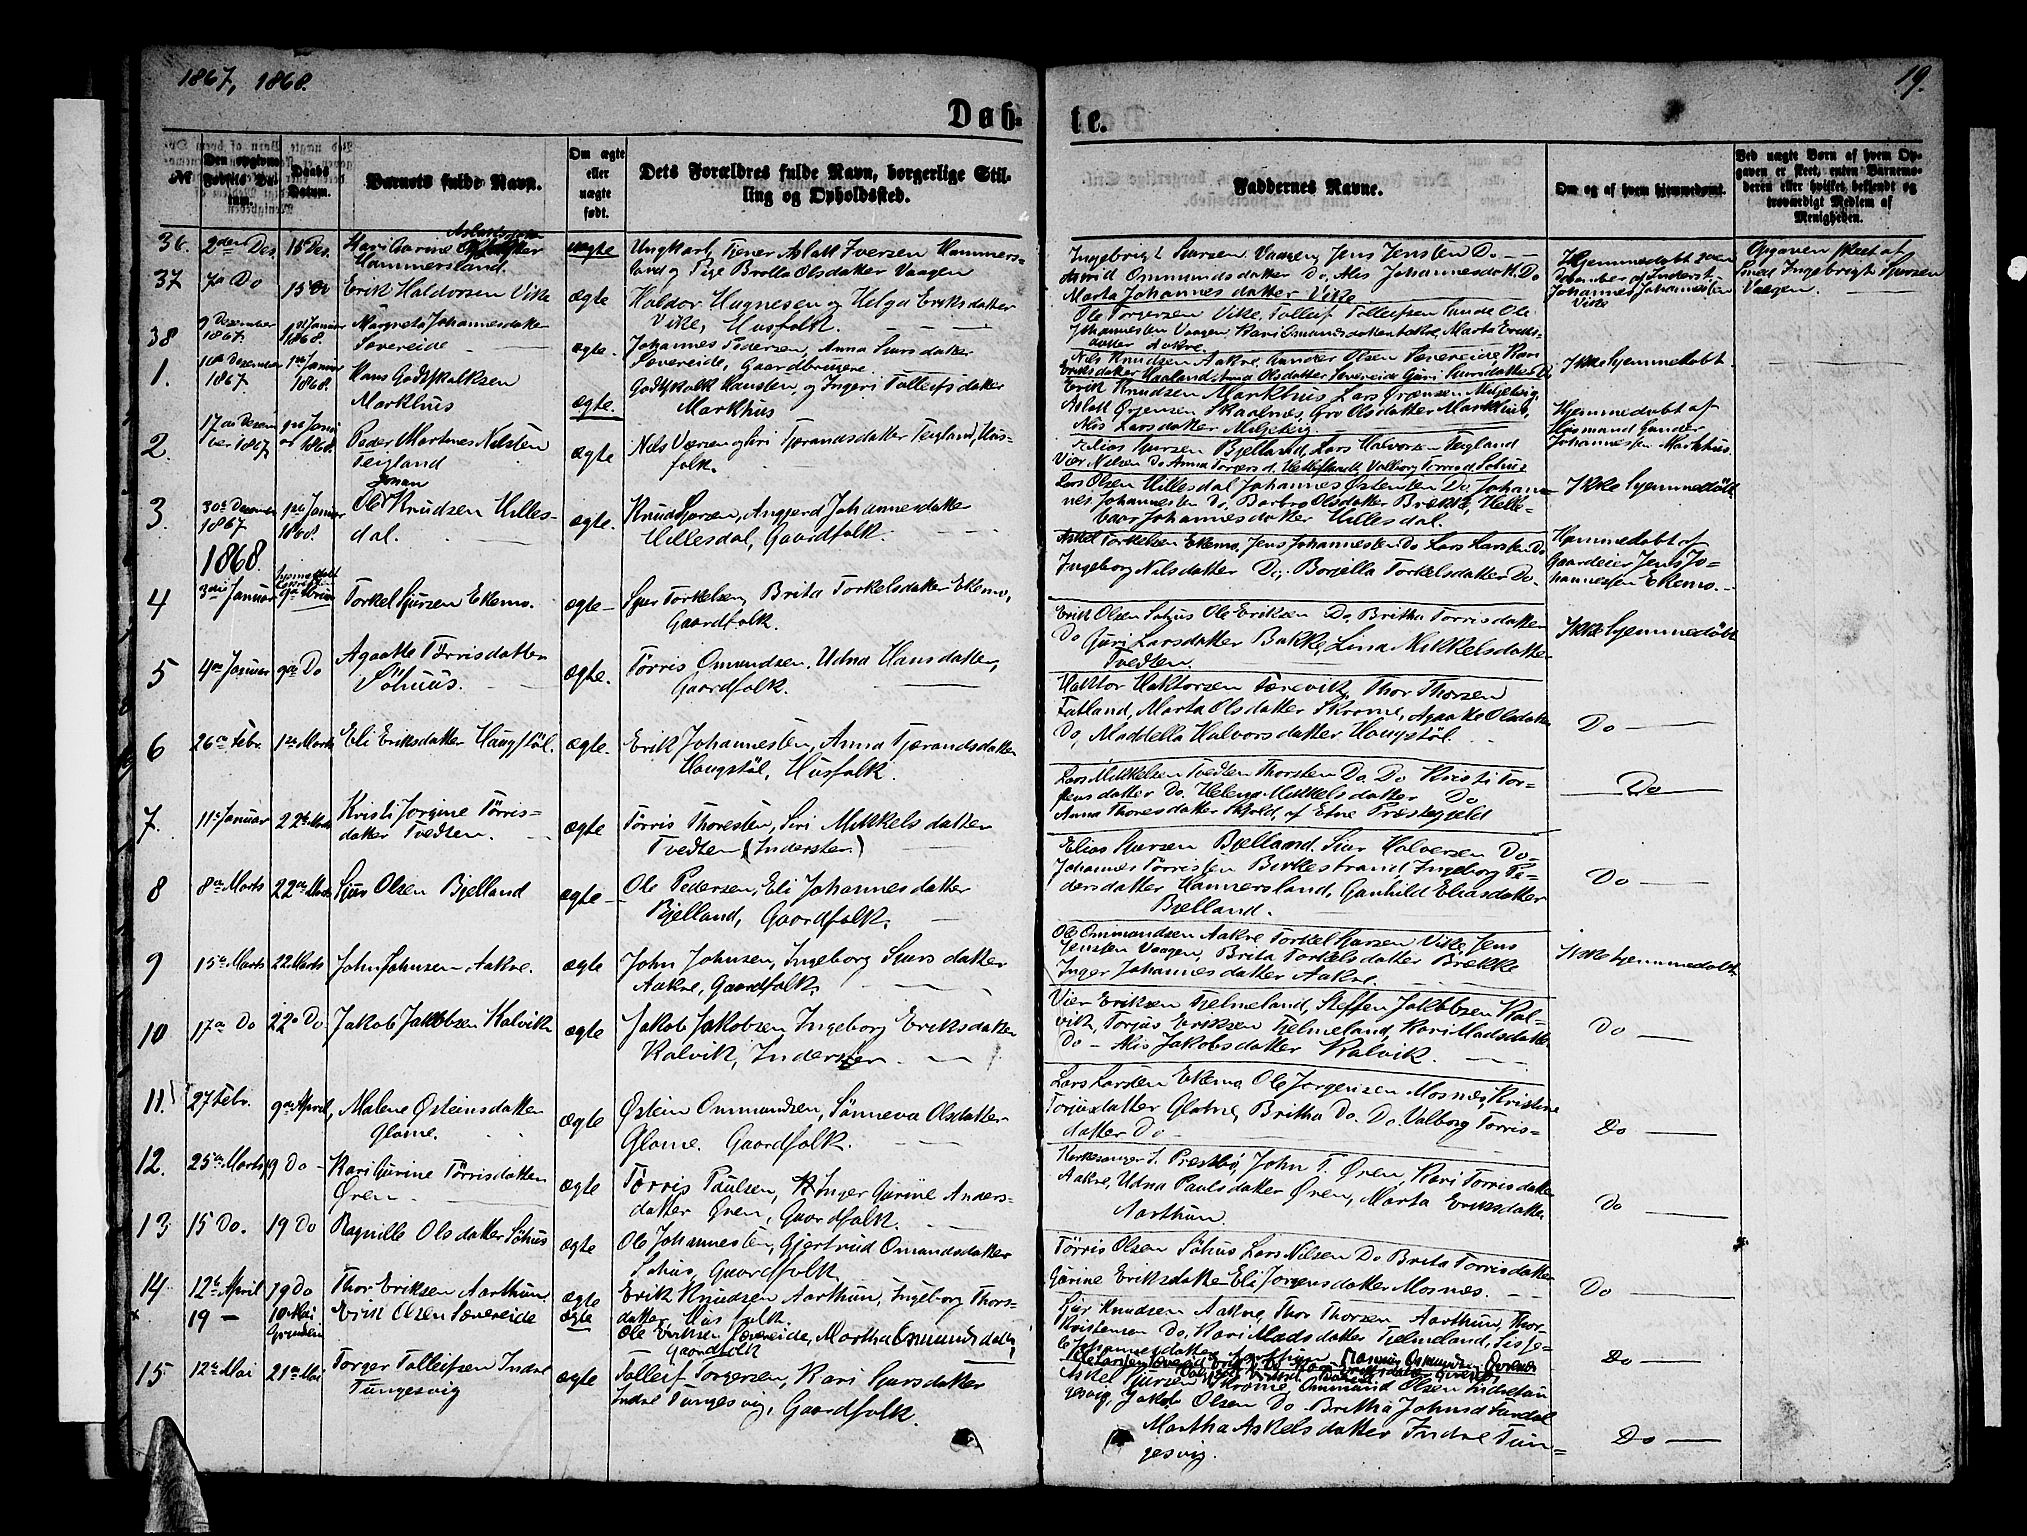 1867, 1868.
19.
Døbte.
№
Den opgivne Fødsels Datum.
Daabs Datum.
Barnets fulde Navn.
Om ægte eller uægte født.
Dets Forældres fulde Navn, borgerlige Stilling og Opholdssted.
Faddernes Navne.
Om og af hvem hjemmedøbt.
Ved uægte Børn af hvem Opgaven er skeet, enten Barnemoderen eller hvilket bekjendt og troværdigt Medlem af Menigheden.
36. 2den Des. 15 Des.
Hammersland.
uægte
Ungkarl, Tjener Aslak Iversen Hammers-
land og Pige Brolla Olsdatter Vaagen
Ingebrigt Sjursen Vaagen, Jens Jensten Do
Ommundsdatter Do, Alis Johannesdatt. Do
Marta Johannesdatter Vike
Johannes Johannesten
Vike
Opgaven skeet af
Smed Ingebrigt Sjursen
Vaagen.
37 7de Do 15 Do Erik Haldorsen Vike
ægte
Haldor Hagnesen og Helga Eriksdatter
Vike, Husfolk.
Ole Torgersen Vike, Tollef Tollefsen Ole
Johannesten Vaagen, Kari Omundsdatter Aakre, Marta Eriks-
datter Aakre.
38 9 Dezember 1867. 1ste Januar 1868. Margreta Johannesdatter
Sævereide
ægte.
Johannes Pedersen, Anna Sjursdatter
Sævereide, Gaardbrugere.
Nils Knudsen Aakre, Gunder Olsen Sævereide, Kari
Eriksdatter Haaland, Anna Olsdatter Sævereide, Guri Sjursdatter Do
Ikke hjemmedøbt.
1. Dezember 1867. 1ste Januar 1868. Hans Godtskalksen
Markhus
ægte.
Godtskalk Hansten, og Ingeri Tollefsdatter
Markhus
Erik Knudsen Markhus, Lars Miljeteig
Aslak Skaalnes, Gro Olsdatter Markhus,
Alis Larsdatter Miljeteig.
Hjemmedøbt af
Husmand Gunder
Johannessen Markhus.
2. 17de Dezember 1867 1ste Januar 1868. Peder Martines Nilsten
Teigland
ægte
Nils Siri Tjerandsdatter Teigland, Hus-
folk.
Elias Sjursen Bjelland, Lars Halvorsen Teigland
Vier Nilsen Do Anna Torgers d. Valborg Torris d. Søhus
3. 30te Dezember 1867. 1ste Januar 1868. Ole Johan Knudsen Hilles-
dal.
ægte.
Knud Sjursen, Angjerd Johannesdatter
Hillesdal, Gaardfolk.
Lars Olsen Hillesdal, Johannes Østensten Do, Johan-
nes Johannesten Do, Barbro Olsdatter Brekke, Helle-
Johannesdatter Hillesdal.
Ikke hjemmedøbt
1868.
4 3die Januar Torkel Sjursen Ekemo.
ægte
Sjur Torkelsen, Brita Torkelsdatter Ekemo,
Gaardfolk.
Askel Torkelsen Ekemo, Jens Johannesten Do Lars Larsten Do
Ingeborg Nilsdatter Do, Borjella Torkelsdatter Do.
Hjemmedøbt af
Gaardeier Jens Jo-
hannessen Ekemo.
5 4de Januar 9de Do Agaathe Tørrisdatter
Søhuus.
ægte.
Tørris Omundsen, Udna Hansdatter,
Gaardfolk.
Erik Olsen Søhus, Ole Eriksen Do, Britha Torrisdatter
Do, Guri Larsdatter Bakke, Lina Mikkelsdatter
Tvedten.
Ikke hjemmedøbt
6 26de Febr. 1ste Marts Eli Eriksdatter Haugstøl.
ægte.
Erik Johannesten, Anna Tjerandsdatter
Haugstøl, Husfolk.
Haktor Haktorsen Særevik, Thor Thorsen
Fatland, Marta Olsdatter Skromme, Agaathe Olsdatter
Do, Maddella Halvorsdatter Haugstøl.
Do
7. 11te Januar 22de Marts Kristi Jorgine Tørris-
datter Tvedten.
ægte
Tørris Thoresten, Siri Mikkelsdatter
Tvedten (Inderster)
Lars Mikkelsen Tvedten, Thorsten Do, Do Kristi Tor-
stensdatter Do, Helena Mikkelsdatter Do
Anna Thoresdatter Skjold, af Etne Præstegjeld
Do
8 8de Marts 22de Marts Sjur Olsen Bjelland
ægte
Ole Pedersen, Eli Johannesdatter
Bjelland, Gaardfolk.
Elias Sjursen Bjelland, Sjur Halversen Do
Johannes Torristen Birkestrand, Ingeborg Pe-
dersdatter Hammersland, Gunhild Eliasdatter
Bjelland.
Do
9 15de Marts 22 Marts John Johnsen Aakre.
ægte
John Johnsen, Ingeborg Sjursdatter
Aakre, Gaardfolk.
Ole Ommundsen Aakre, Torkel Sjursen Vike, Jens
Jensten Vaagen, Brita Torkelsdatter Brække
Inger Johannesdatter Aakre.
Ikke hjemmedøbt
10 17de Do 22 Do Jakob Jakobsen Kalvik
ægte
Jakob Jakobsen, Ingeborg Eriksdatter
Kalvik, Inderster
Vier Eriksen Fjelmeland, Steffen Jakobsen Kal-
vik, Torjus Eriksen Fjelmeland, Kari Madsdatter
Do - Alis Jakobsdatter Kalvik.
Do
11. 27 Febr. 9de April, Malene Østeinsdatter
Glome.
ægte
Østein Ommundsen, Sønneva Olsdatter
Glome. Gaardfolk.
Lars Larsten Ekemo, Ole Jorgensen Mosnes, Kristine
Torjusdatter Glome, Britha Do. Do. Valborg Torris-
datter Do
Do
12. 25de Marts 9 Do Kari Gurine Tørrisdatter
Øren
ægte
Tørris Paulsen, Inger Gurine Anders-
datter Øren, Gaardfolk.
Kirkesanger S. Præstbø, John T. Øren, Kari Torrisdatter
Aakre, Udna Paulsdatter Øren, Marta Eriksdatter
Aarthun.
Do
13 15 Do. 19 Do Ragnille Olsdatter Søhus
ægte
Ole Johannesten, Gjertrud Omundsdatter
Søhus, Gaardfolk.
Tørris Olsen Søhus, Lars Nilsen Do Brita Torrisdatter
Gurine Eriksdatter Eli Jorgensdatter Mosnes.
Do
14 12te April 19 Do Thor Eriksen Aarthun
ægte
Erik Knudsen Aarthun, Ingeborg Thors-
datter, Husfolk.
Sjur Knudsen Aakre, Thor Thorsen Aarthun, Thor
Kristensen Do, Kari Madsdatter Fjelmeland,
Johannesdatter Aarthun
Do
19 - 10 Mai Erik Olsen Sævereide
ægte
Ole Eriksen Sævereide, Martha Omundsdatter
Gaardfolk
15 12te Mai 21de Mai Torger Tolleifsen Indre
Tungesvig
ægte
Tolleif Torgersen, Kari Sjursdatter
Indre Tungesvig, Gaardfolk.
Askel Sjursen Skrome, Ommund Olsen Indre Tun
gesvig, Jakob Olsen Do. Britha Johns d Sundal
Martha Askelsdatter Indre Tun-
gesvig.
Do